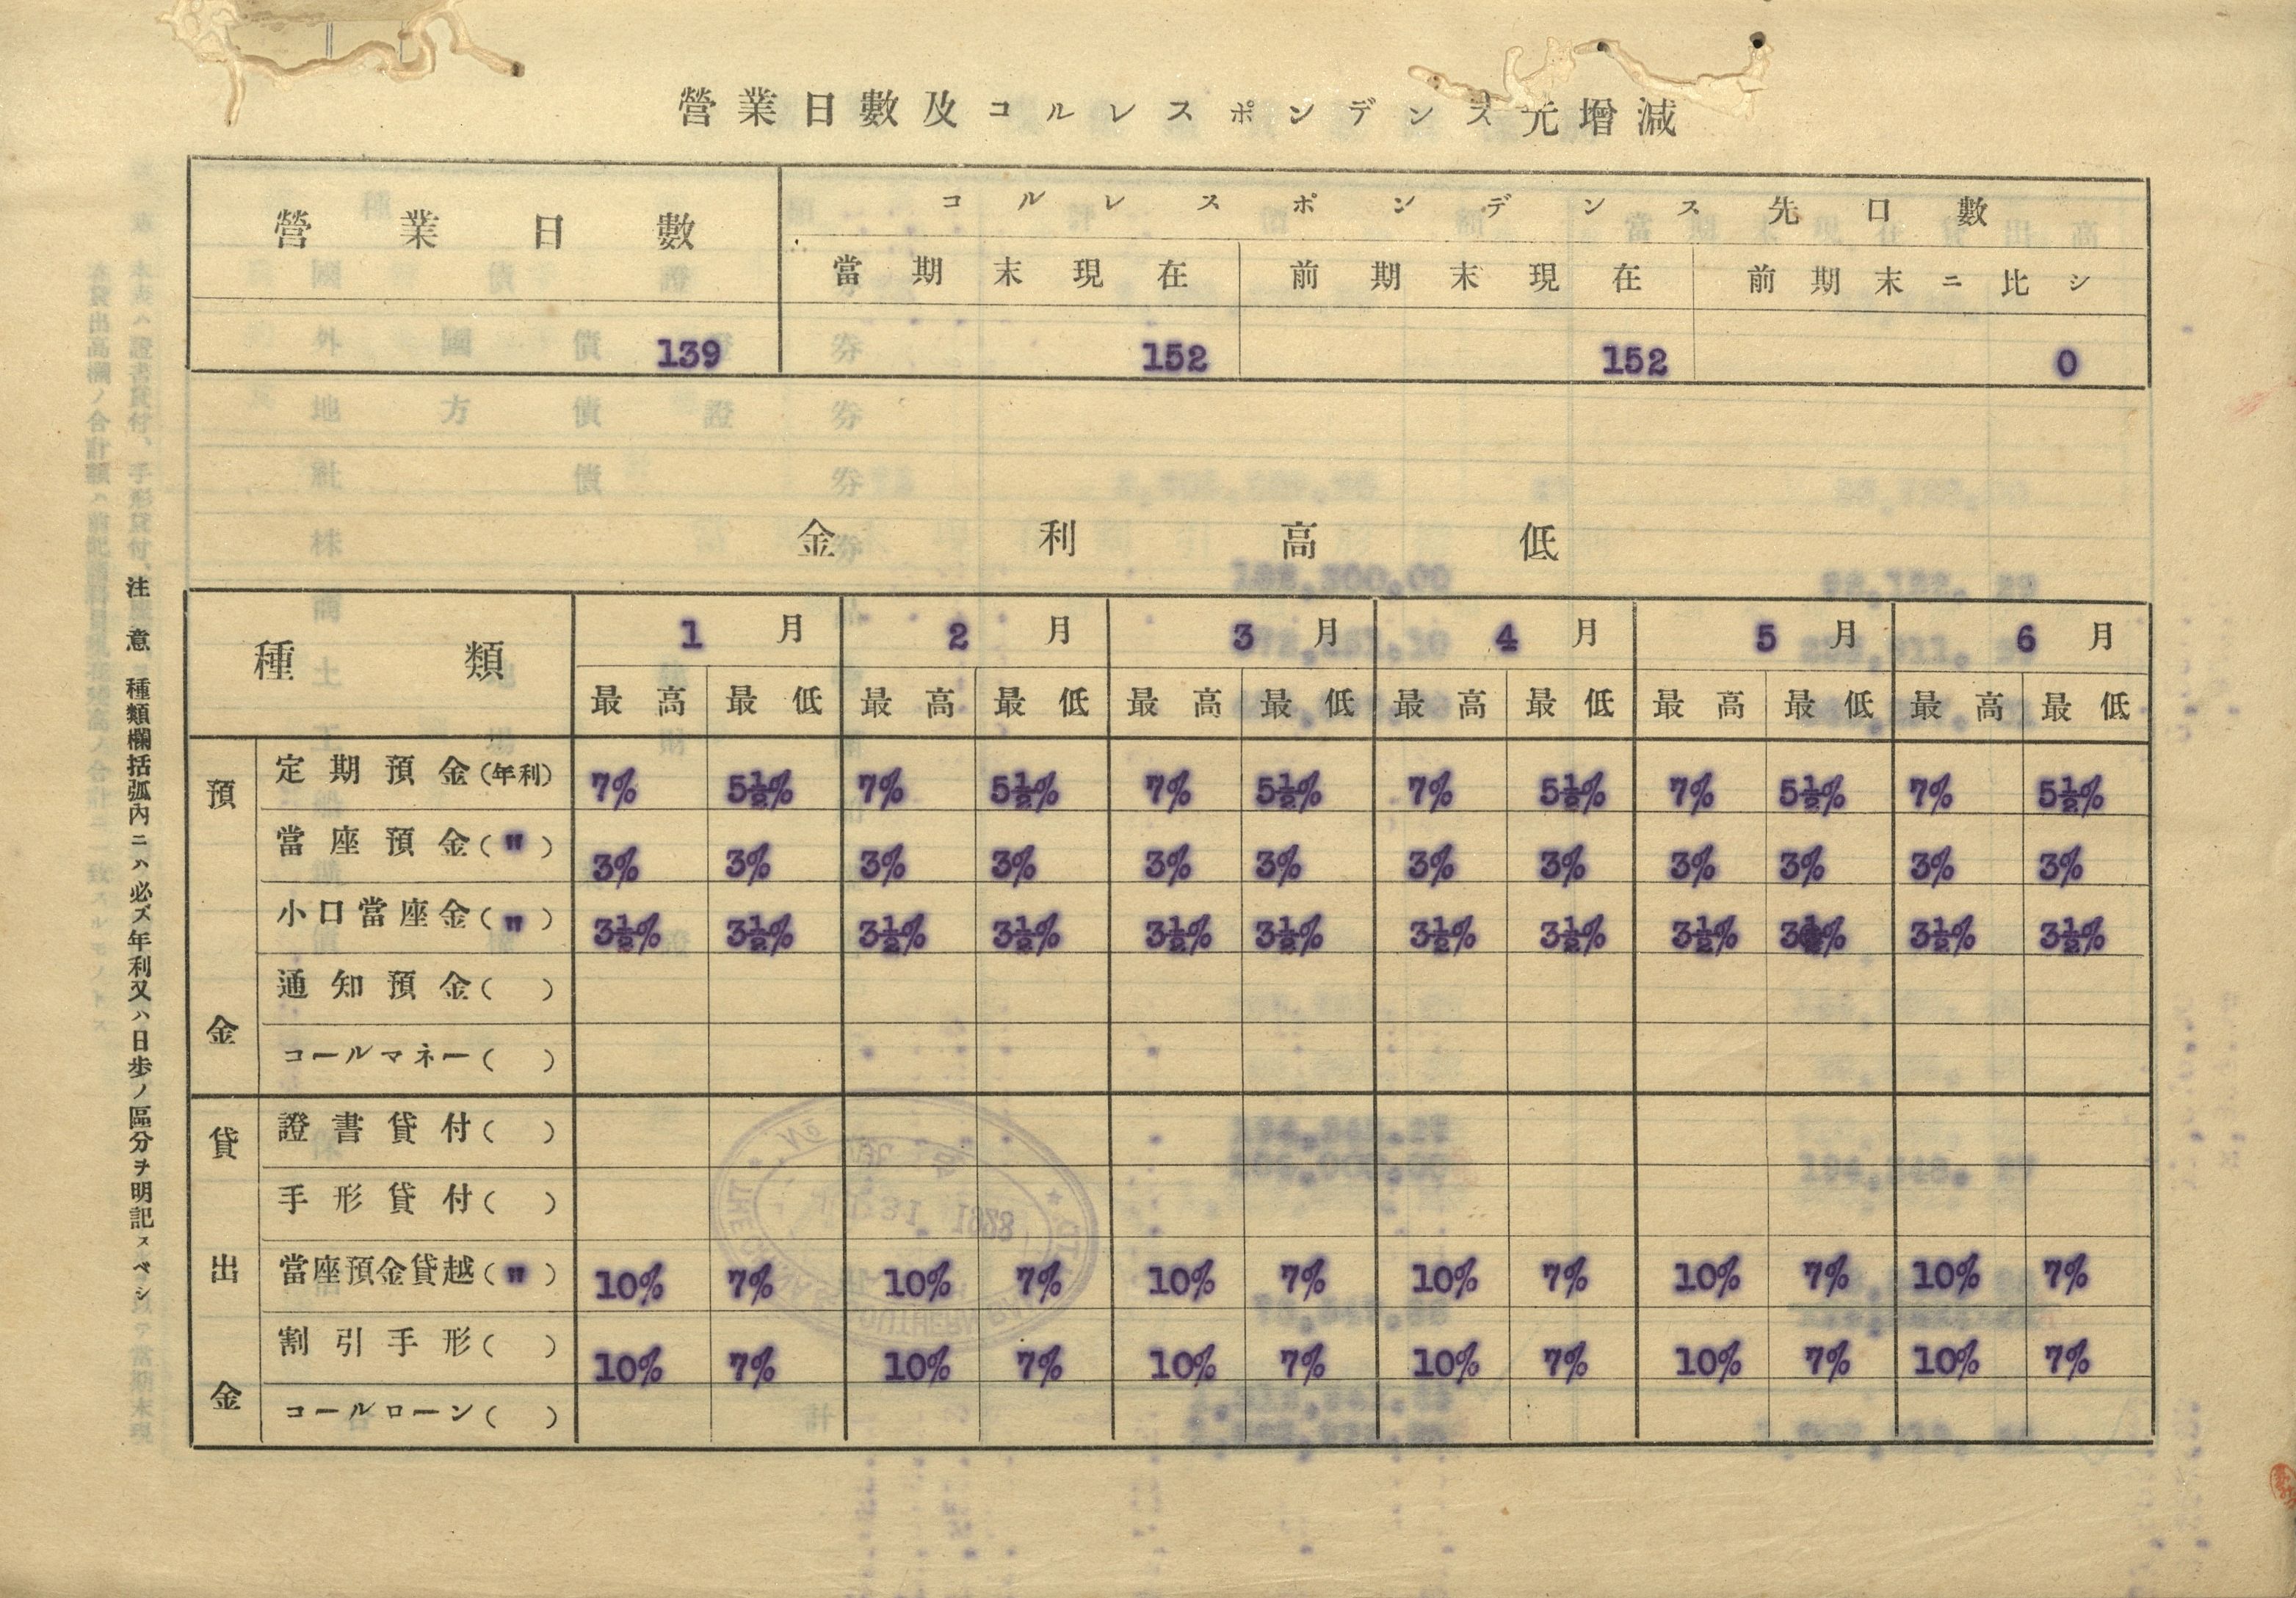 營業日數及コルレスポンデンス先增減
營業日數
コルレスポンデンス先口數
當期末現在 前期末現在 前期末ニ比シ
139 152 152 0
金利高低
種類 1月 2月 3月 4月 5月 6月
最高 最低 最高 最低 最高 最低 最高 最低 最高 最低 最高 最低
預金
定期預金(年利) 7% 5½% 7% 5½% 7% 5½% 7% 5½% 7% 5½% 7% 5½%
當座預金(〃) 3% 3% 3% 3% 3% 3% 3% 3% 3% 3% 3% 3%
小口當座金(〃) 3½% 3½% 3½% 3½% 3½% 3½% 3½% 3½% 3½% 3½% 3½% 3½%
通知預金( )
コールマネー( )
貸出金
證書貸付( )
手形貸付( )
當座預金貸越(〃) 10% 7% 10% 7% 10% 7% 10% 7% 10% 7% 10% 7%
割引手形( ) 10% 7% 10% 7% 10% 7% 10% 7% 10% 7% 10% 7%
コールローン( )
注意 種類欄括弧內ニハ必ズ年利又ハ日步ノ區分ヲ明記スベシ